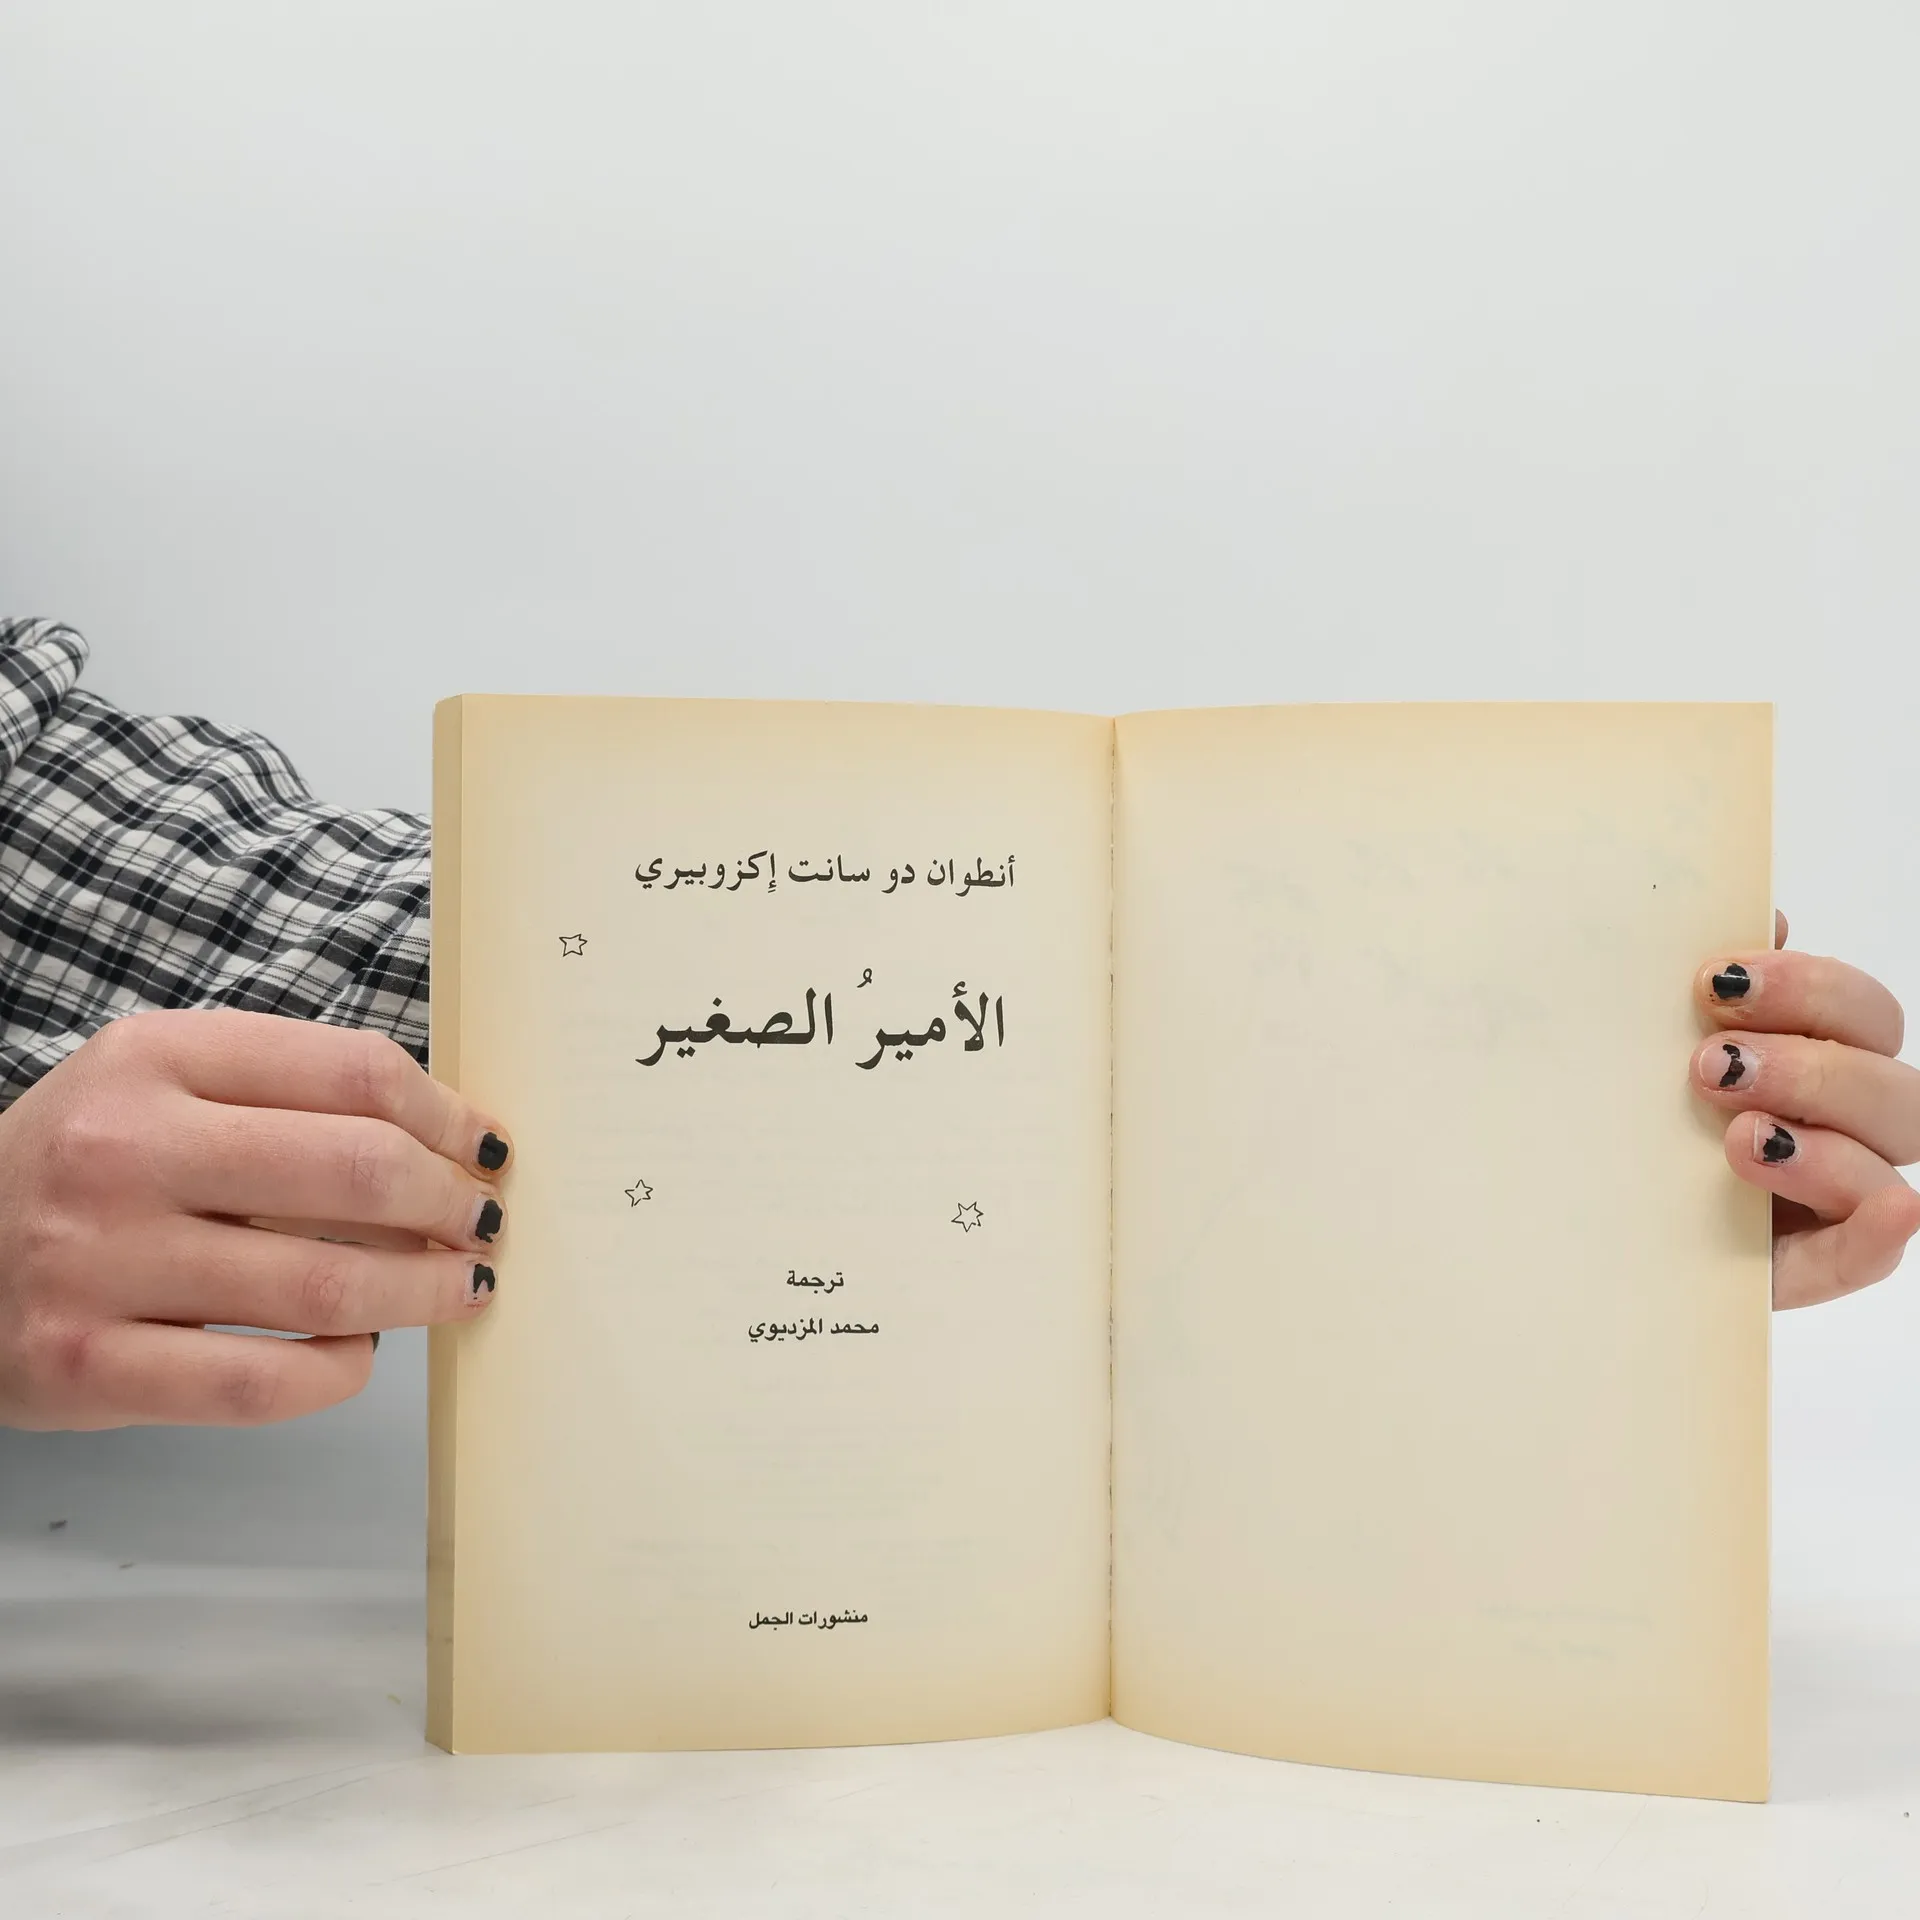 أنطوان دو سانت إِكزوبيري
الأميرُ الصغير
ترجمة
محمد المزديوي
منشورات الجمل